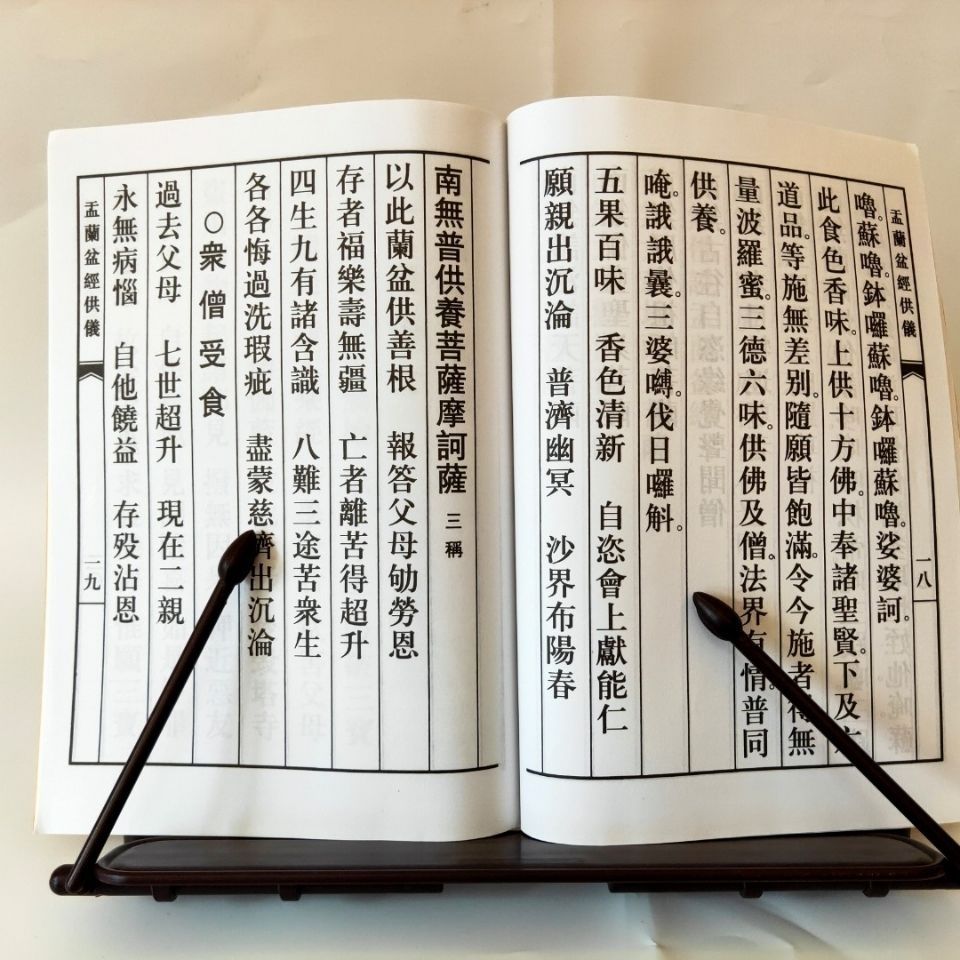 盂蘭盆經供儀 一八
嚕。蘇嚕。鉢囉蘇嚕。鉢囉蘇嚕。娑婆訶。
此食色香味。上供十方佛。中奉諸聖賢。下及六
道品。等施無差别。隨願皆飽滿。令今施者得無
量波羅蜜。三德六味。供佛及僧。法界有情。普同
供養。
唵。誐誐曩。三婆嚩。伐日囉斛。
五果百味 香色清新 自恣會上獻能仁
願親出沉淪 普濟幽冥 沙界布陽春
南無普供養菩薩摩訶薩 三稱
以此蘭盆供善根 報答父母劬勞恩
存者福樂壽無疆 亡者離苦得超升
四生九有諸含識 八難三途苦衆生
各各悔過洗瑕疵 盡蒙慈濟出沉淪
○衆僧受食
過去父母 七世超升 現在二親
永無病惱 自他饒益 存歿沾恩
盂蘭盆經供儀 一九